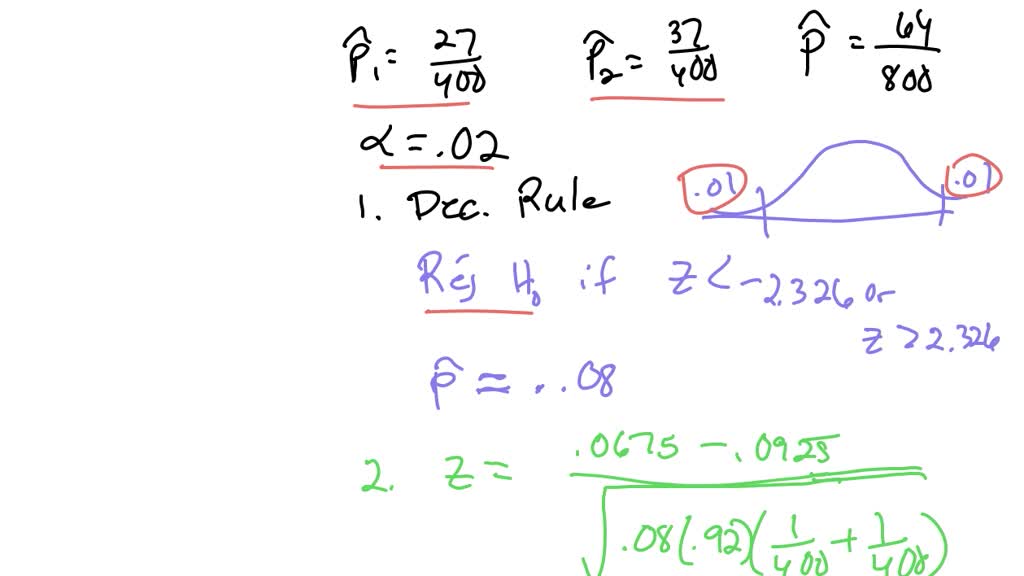 p̂₁ = 27/400 p̂₂ = 37/400 p̂ = 64/800
α = .02
1. Dec. Rule .01 .01
Rej H₀ if z < -2.326 or
z > 2.326
p̂ = . .08
2. z = (.0675 - .0925) / √(.08(.92)(1/400 + 1/400))